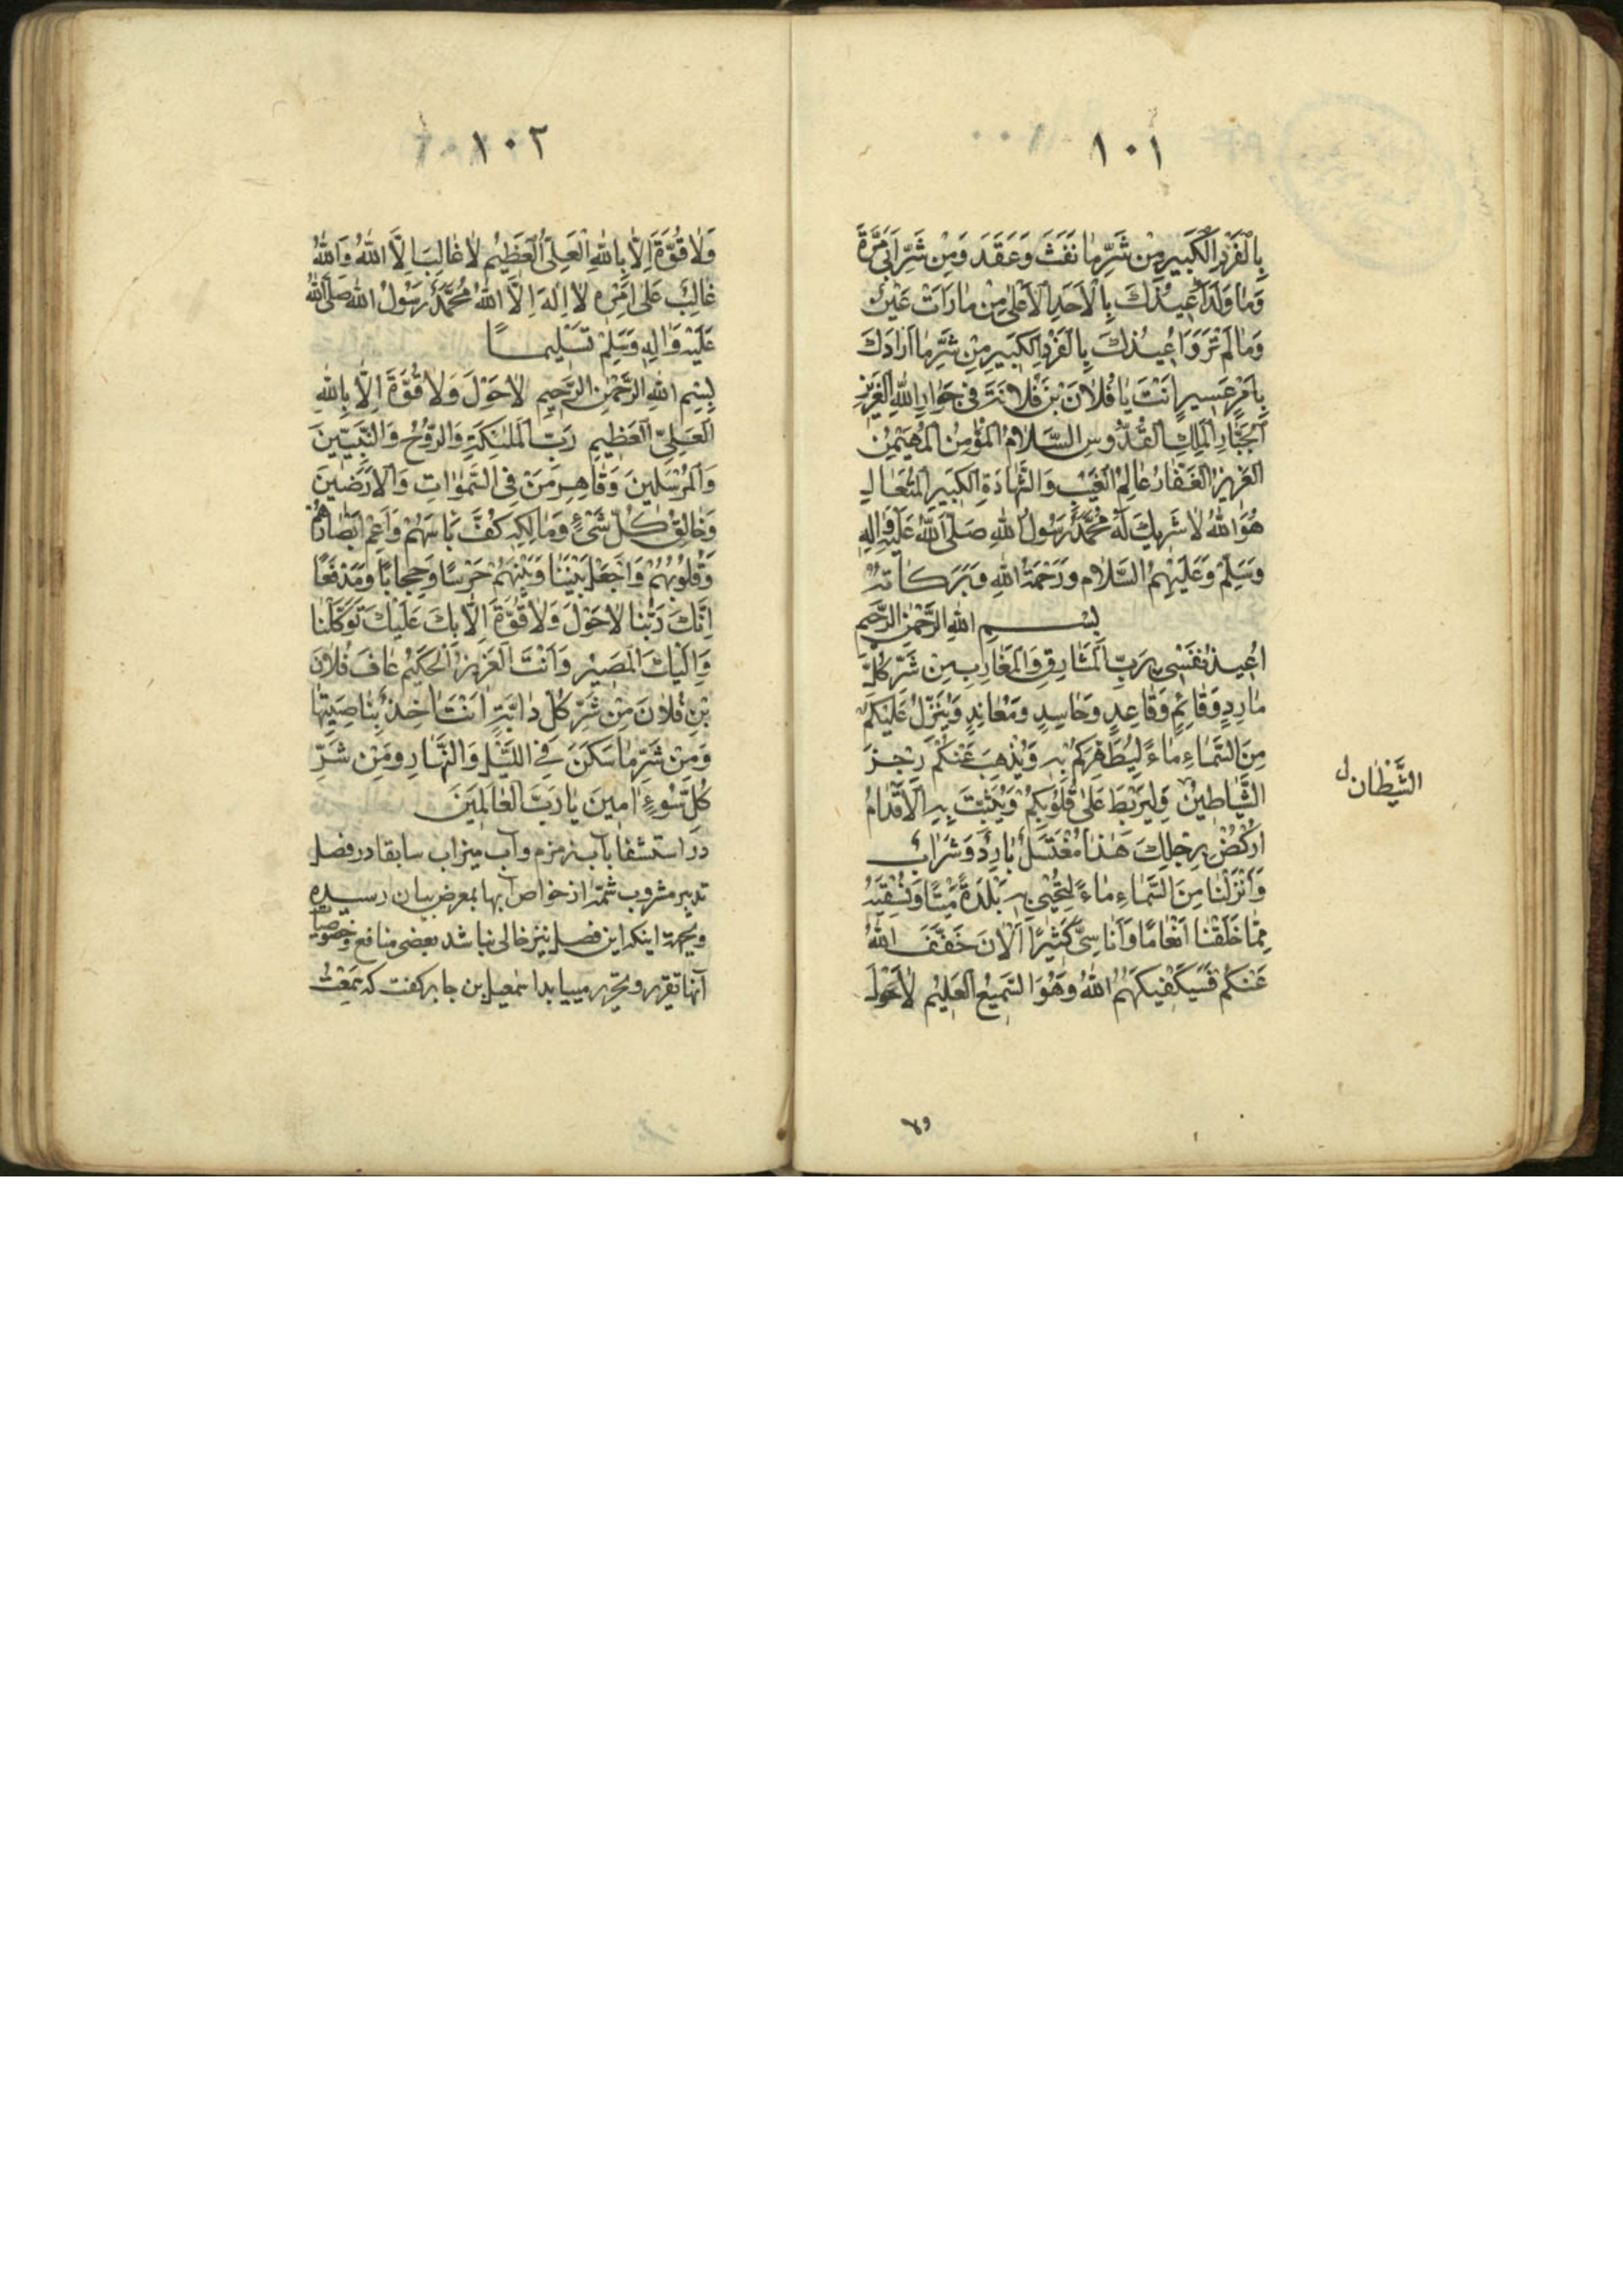 ١٠١
بِالْفَرْدِ الْكَبِيرِ مِنْ شَرِّ مَا نَفَثَ وَعَقَدَ وَمِنْ شَرِّ اَبِى مُرَّةَ
وَمَا وَلَدَ اُعِيذُكَ بِالْاَحَدِ الْاَعْلىٰ مِنْ مَا رَاَتْ عَيْنٌ
وَمَا لَمْ تَرَ وَاُعِيذُكَ بِالْفَرْدِ الْكَبِيرِ مِنْ شَرِّ مَا اَرَادَكَ
بِاَمْرٍ عَسِيرٍ اَنْتَ يَا فُلَانَ بْنَ فُلَانَةَ فِى جِوَارِ اللهِ الْعَزِيزِ
الْجَبَّارِ الْمَلِكِ الْقُدُّوسِ السَّلَامُ الْمُؤْمِنُ الْمُهَيْمِنُ
الْعَزِيزُ الْغَفَّارُ عَالِمُ الْغَيْبِ وَالشَّهَادَةِ الْكَبِيرِ الْمُتَعَالِ
هُوَ اللهُ لَا شَرِيكَ لَهُ مُحَمَّدٌ رَسُولُ اللهِ صَلَّى اللهُ عَلَيْهِ وَاٰلِهِ
وَسَلَّمَ وَعَلَيْهِمُ السَّلَامُ وَرَحْمَةُ اللهِ وَبَرَكَاتُهُ
بِسْمِ اللهِ الرَّحْمٰنِ الرَّحِيمِ
اُعِيذُ نَفْسِى بِرَبِّ الْمَشَارِقِ وَالْمَغَارِبِ مِنْ شَرِّ كُلِّ
مَارِدٍ وَقَائِمٍ وَقَاعِدٍ وَحَاسِدٍ وَمُعَانِدٍ وَيُنَزِّلُ عَلَيْكُمْ
مِنَ السَّمَاءِ مَاءً لِيُطَهِّرَكُمْ بِهِ وَيُذْهِبَ عَنْكُمْ رِجْزَ
الشَّيَاطِينِ وَلِيَرْبِطَ عَلىٰ قُلُوبِكُمْ وَيُثَبِّتَ بِهِ الْاَقْدَامَ
الشَّيْطَان ل
ارْكُضْ بِرِجْلِكَ هٰذَا مُغْتَسَلٌ بَارِدٌ وَشَرَابٌ
وَاَنْزَلْنَا مِنَ السَّمَاءِ مَاءً لِنُحْيِىَ بِهِ بَلْدَةً مَيْتًا وَنُسْقِيَهُ
مِمَّا خَلَقْنَا اَنْعَامًا وَاَنَاسِىَّ كَثِيرًا اَلْاٰنَ خَفَّفَ اللهُ
عَنْكُمْ فَسَيَكْفِيكَهُمُ اللهُ وَهُوَ السَّمِيعُ الْعَلِيمُ لَا حَوْلَ
ولا
١٠٢
وَلَا قُوَّةَ اِلَّا بِاللهِ الْعَلِىِّ الْعَظِيمِ لَا غَالِبَ اِلَّا اللهُ وَاللهُ
غَالِبٌ عَلىٰ اَمْرِهِ لَا اِلٰهَ اِلَّا اللهُ مُحَمَّدٌ رَسُولُ اللهِ صَلَّى اللهُ
عَلَيْهِ وَاٰلِهِ وَسَلَّمَ تَسْلِيمًا
بِسْمِ اللهِ الرَّحْمٰنِ الرَّحِيمِ لَا حَوْلَ وَلَا قُوَّةَ اِلَّا بِاللهِ
الْعَلِىِّ الْعَظِيمِ رَبَّ الْمَلٰئِكَةِ وَالرُّوحِ وَالنَّبِيِّينَ
وَالْمُرْسَلِينَ وَقَاهِرَ مَنْ فِى السَّمٰوَاتِ وَالْاَرَضِينَ
وَخَالِقَ كُلِّ شَىْءٍ وَمَالِكَهُ كُفَّ بَاْسَهُمْ وَاَعْمِ اَبْصَارَهُمْ
وَقُلُوبَهُمْ وَاجْعَلْ بَيْنَنَا وَبَيْنَهُمْ حَرَسًا وَحِجَابًا وَمَدْفَعًا
اِنَّكَ رَبُّنَا لَا حَوْلَ وَلَا قُوَّةَ اِلَّا بِكَ عَلَيْكَ تَوَكَّلْنَا
وَاِلَيْكَ الْمَصِيرُ وَاَنْتَ الْعَزِيزُ الْحَكِيمُ عَافِ فُلَانَ
بْنِ فُلَانَ مِنْ شَرِّ كُلِّ دَابَّةٍ اَنْتَ اٰخِذٌ بِنَاصِيَتِهَا
وَمِنْ شَرِّ مَا سَكَنَ فِى اللَّيْلِ وَالنَّهَارِ وَمِنْ شَرِّ
كُلِّ سُوءٍ اٰمِينَ يَا رَبَّ الْعَالَمِينَ
در استشفا بآب زمزم وآب ميزاب سابقا در فصل
تدبير مشروب شمّهٔ از خواص آبها بمعرض بيان رسيده
وبجهة اينكه اين فصل نيز خالى نباشد بعضى منافع وخصوصيا
آنها تقرير وتحرير مييابد اسمعيل بن جابر كفت كه سَمِعْتُ